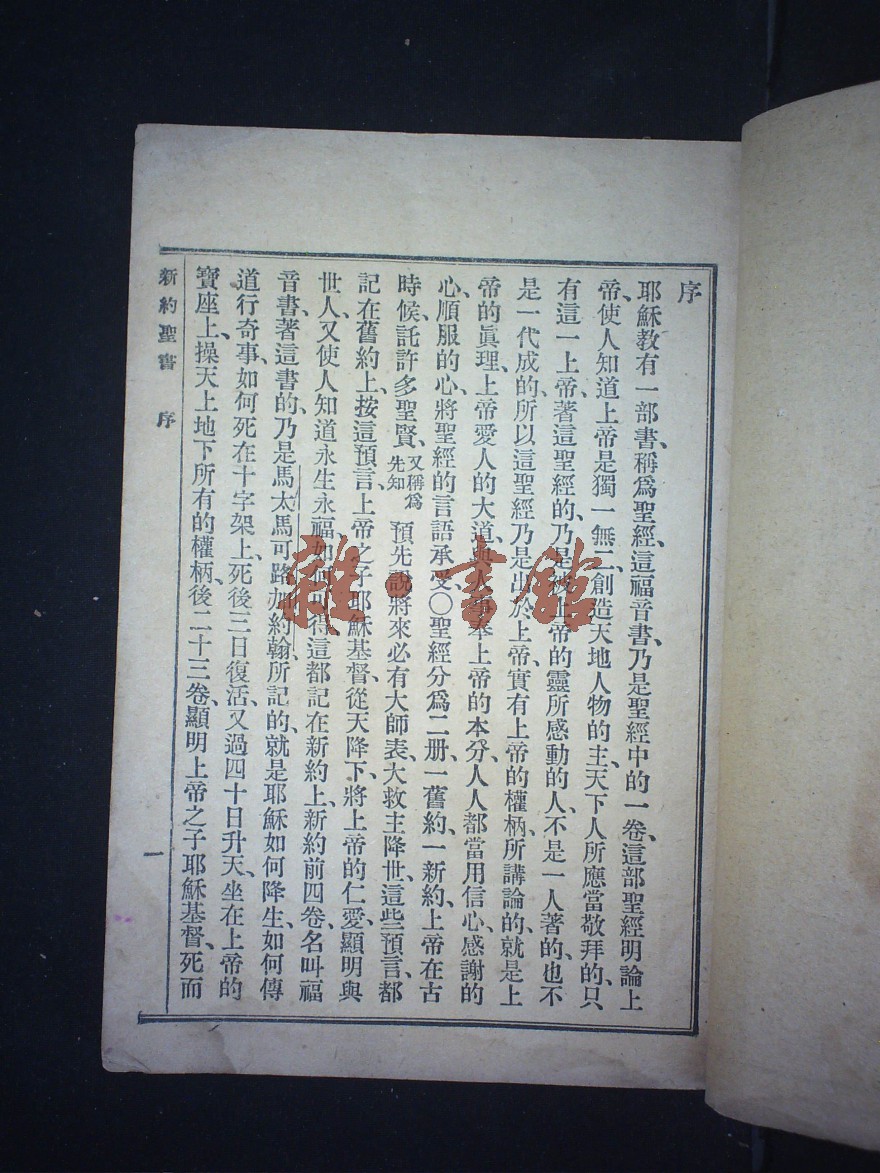 序
耶穌教有一部書、稱爲聖經、這福音書、乃是聖經中的一卷、這部聖經明論上
帝、使人知道上帝是獨一無二、創造天地人物的主、天下人所應當敬拜的、只
有這一上帝、著這聖經的、乃是被上帝的靈所感動的人、不是一人著的、也不
是一代成的、所以這聖經乃是出於上帝、實有上帝的權柄、所講論的、就是上
帝的眞理、上帝愛人的大道、與人 奉上帝的本分、人人都當用信心、感謝的
心、順服的心、將聖經的言語承受、○聖經分爲二册、一舊約、一新約、上帝在古
時候、託許多聖賢、又稱爲先知、預先說將來必有大師表、大救主降世、這些預言、都
記在舊約上、按這預言、上帝之子耶穌基督、從天降下、將上帝的仁愛、顯明與
世人、又使人知道永生永福如何可得、這都記在新約上、新約前四卷、名叫福
音書、著這書的、乃是馬太馬可路加約翰所記的、就是耶穌如何降生、如何傳
道行奇事、如何死在十字架上、死後三日復活、又過四十日升天、坐在上帝的
寶座上、操天上地下所有的權柄、後二十三卷、顯明上帝之子耶穌基督、死而
新約聖書 序
一
雜·書館